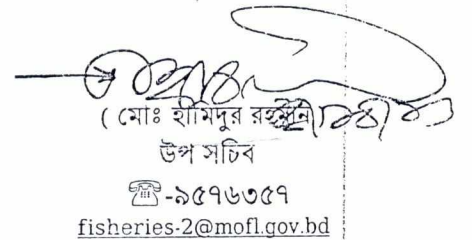 ( মোঃ হামিদুর রহমান)
উপ সচিব
☏-৯৫৭৬৩৫৭
fisheries-2@mofl.gov.bd